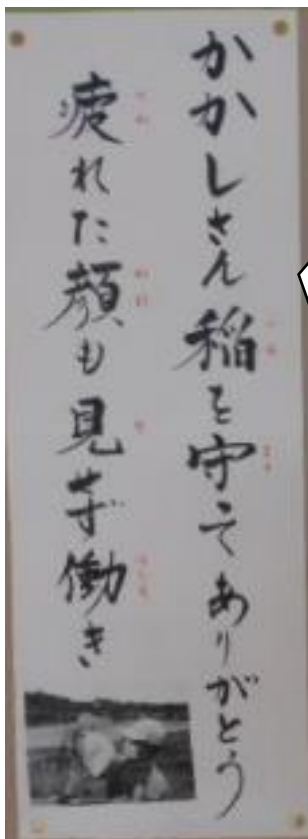 かかしさん稲を守ってありがとう
疲れた顔も見せず働き